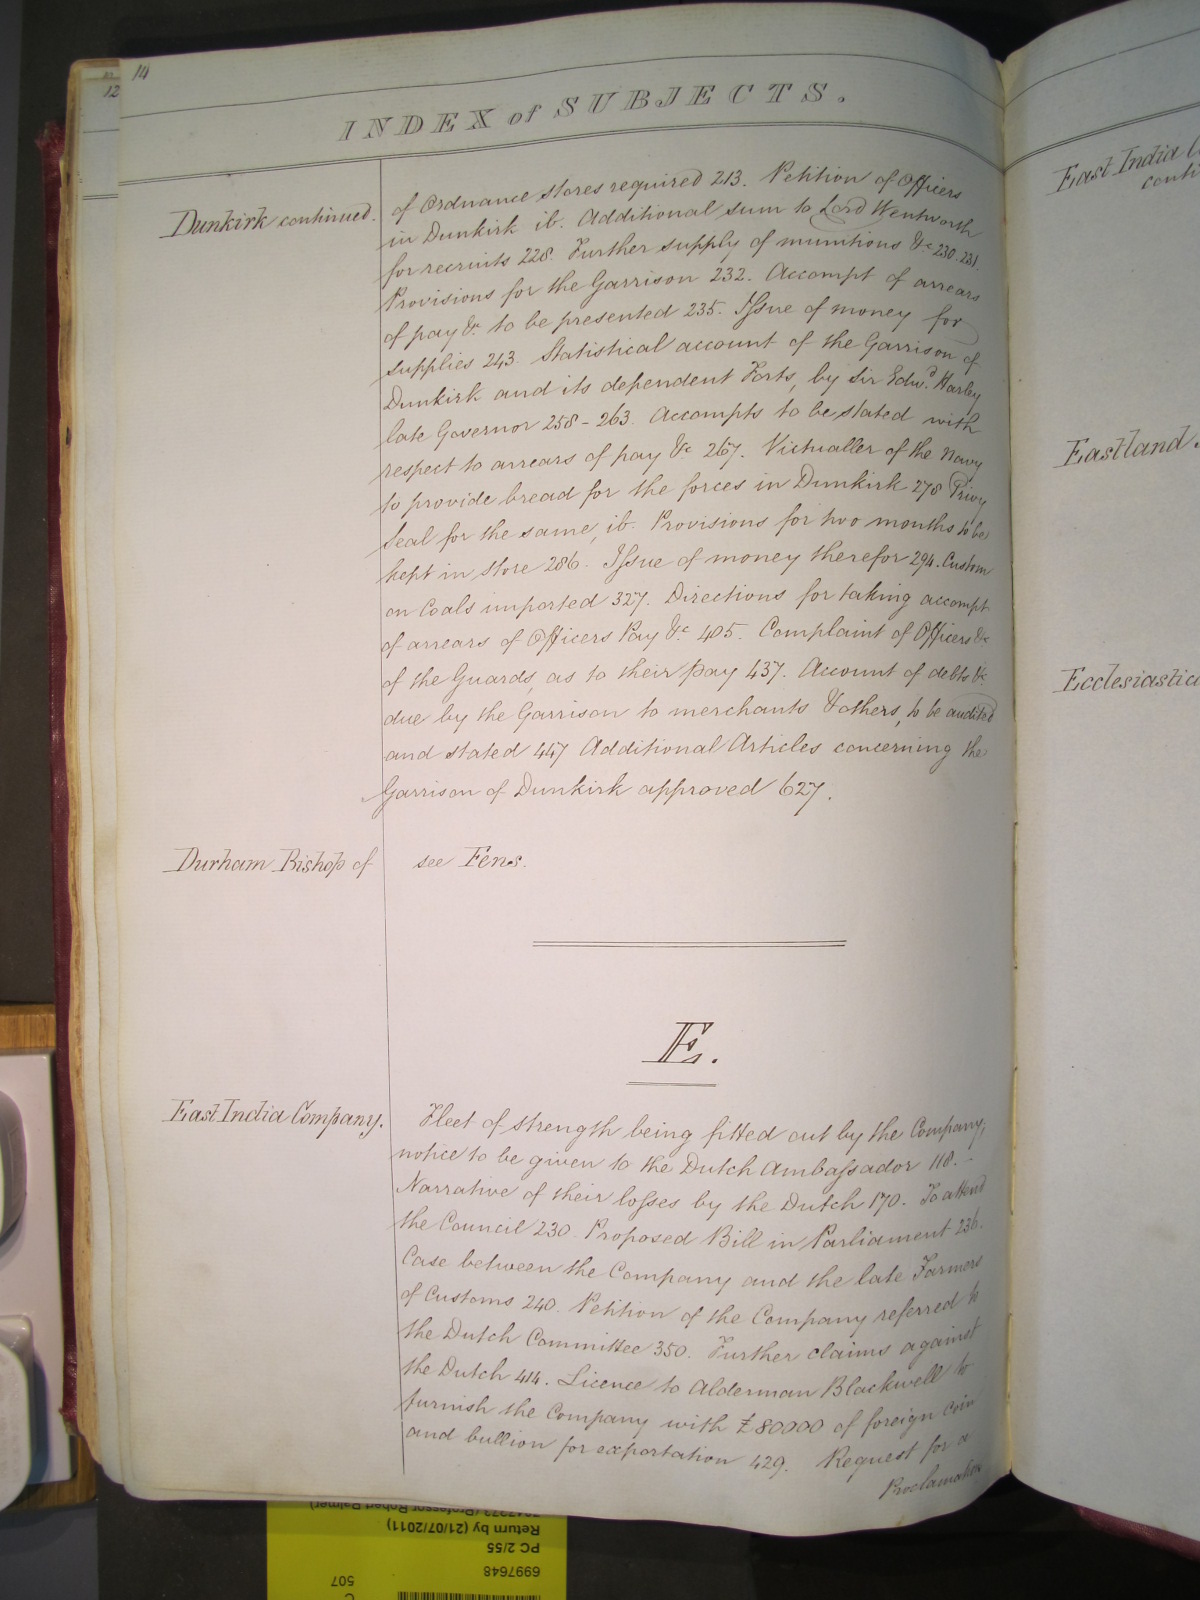 14
12
INDEX of SUBJECTS.
Dunkirk continued.
of Ordnance stores required 213. Petition of Officers
in Dunkirk ib. Additional sum to Lord Wentworth
for recruits 228. Further supply of munitions &c 230. 231.
Provisions for the Garrison 232. Accompt of arrears
of pay &c. to be presented 235. Issue of money for
supplies 243. Statistical account of the Garrison of
Dunkirk and its dependent Forts, by Sir Edwd. Harley
late Governor 258-263. Accompts to be stated with
respect to arrears of pay &c 267. Victualler of the Navy
to provide bread for the forces in Dunkirk 278 Privy
Seal for the same, ib. Provisions for two months to be
kept in store 286. Issue of money therefor 294. Custom
on Coals imported 327. Directions for taking accompt
of arrears of Officers Pay &c 405. Complaint of Officers &c
of the Guards, as to their pay 437. Account of debts &c.
due by the Garrison to merchants & others, to be audited
and stated 447 Additional Articles concerning the
Garrison of Dunkirk approved 627.
Durham Bishop of see Fens.
E.
East India Company.
Fleet of strength being fitted out by the Company,
notice to be given to the Dutch Ambassador 118. -
Narrative of their losses by the Dutch 170. To attend
the Council 230. Proposed Bill in Parliament 236.
Case between the Company and the late Farmers
of Customs 240. Petition of the Company referred to
the Dutch Committee 350. Further claims against
the Dutch 414. Licence to Alderman Blackwell to
furnish the Company with £80000 of foreign coin
and bullion for exportation 429. Request for a
Proclamation
East India C
conti
Eastland
Ecclesiastica
(Professor Robert Palmer)
Return by (21/07/2011)
PC 2/55
6997648
507
C